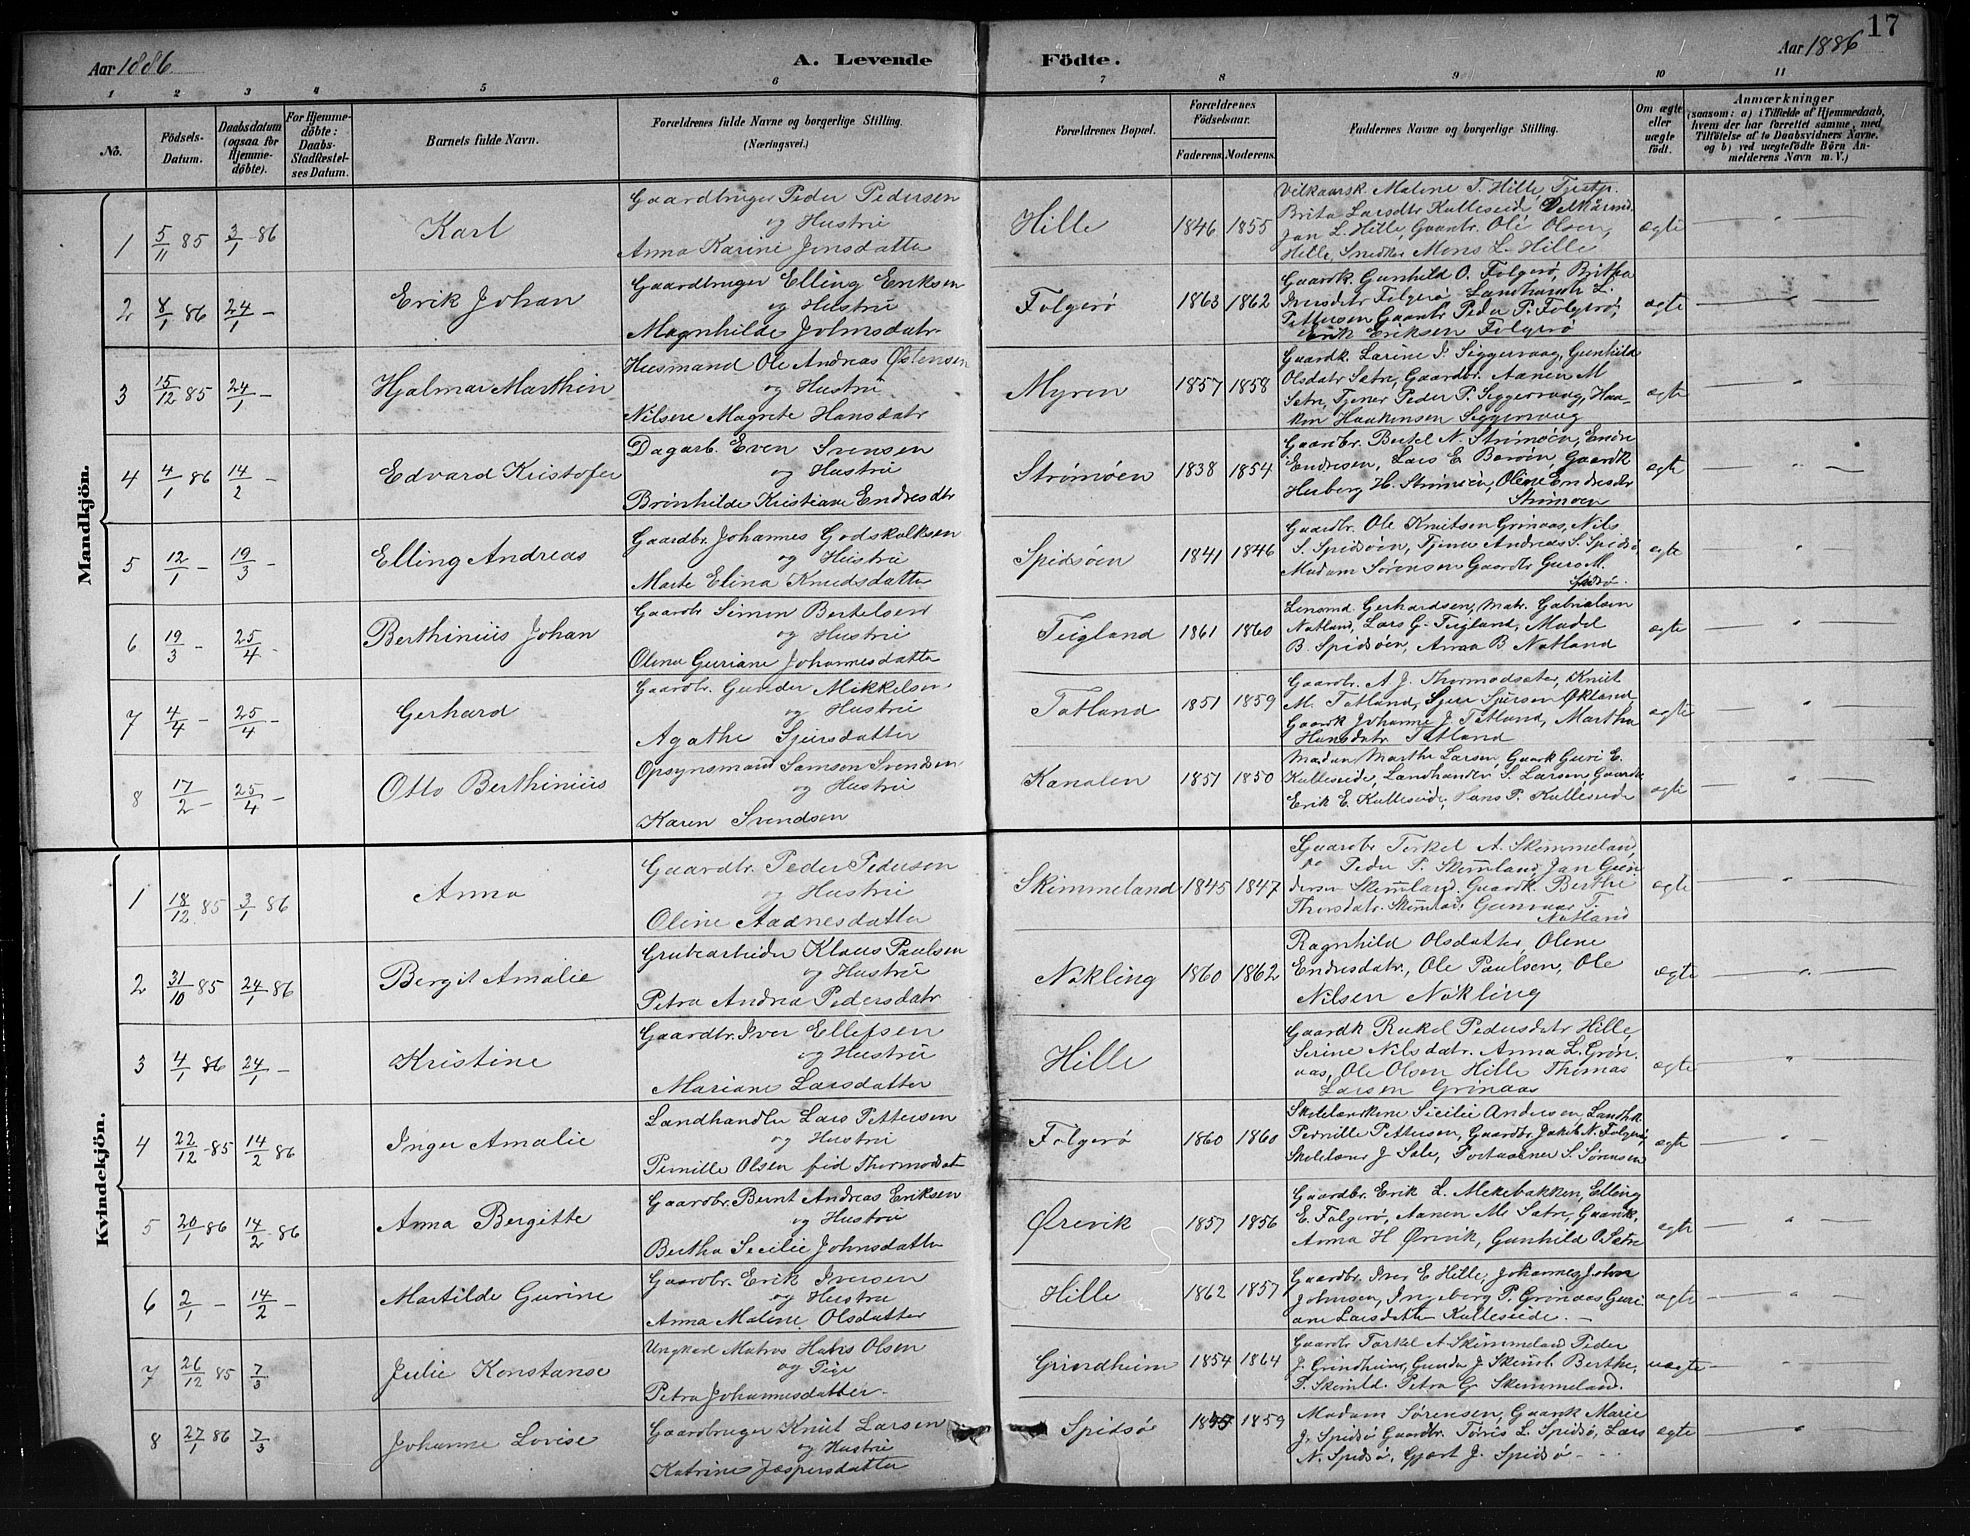 17
Aar 1886
A. Levende
Födte.
Aar 1886
1 2 3 4 5 6 7 8 9 10 11
No.
Födsels-Datum.
Daabsdatum (ogsaa for Hjemmedøbte).
For Hjemmedöbte: Daabs-Stadfæstelses Datum.
Barnets fulde Navn.
Forældrenes fulde Navne og borgerlige Stilling. (Næringsvei.)
Forældrenes Bopæl.
Forældrenes Födselsaar.
Faderens. Moderens.
Faddernes Navne og borgerlige Stilling.
Om ægte eller uægte födt.
Anmærkninger
(saasom: a) i Tilfælde af Hjemmedaab, hvem der har forrettet samme, med Tilföielse af to Daabsvidners Navne. og b) ved uægtefödte Börn Anmelderens Navn m. V.)
Mandkjön.
1 5/11 85 3/1 86 Karl
Gaardbruger Peder Pedersen
og Hustru
Anna Karine Jensdatter
Hille 1846 1855
Vilkaarsk. Malene T. Hille, Tjestp.
Brita Larsdtr Kulleseide,
Jan L. Hille, Gaardbr. Ole Olsen,
Hille, Mons L. Hille
ægte
2 8/1 86 24/1 – Erik Johan
Gaardbruger Elling Eriksen
og Hustru
Magnhilde Johnsdatr
Folgerø 1863 1862
Gaardk. Gunhild O. Folgerø, Britha
Iversdatr Folgerø, Landhandl L.
Pettersen Gaardbr Peder P. Folgerø,
Erik Eriksen Folgerø
ægte
3 15/12 85 24/1 – Hjalmar Marthin
Husmand Ole Andreas Østensen
og Hustru
Nilsine Magrete Hansdatr
Myren 1857 1858
Gaardk. Larine J. Siggervaag, Gunhild
Olsdatr Sætre, Gaardbr. Aanen M
Sætre, Tjener Peder P. Siggervaag, Haa-
kon Haakensen Siggervaag
ægte
4 4/1 86 14/2 – Edvard Kristofer
Dagarb. Even Svensen
og Hustru
Brønhilde Kristiane Endresdtr
Strømøen 1838 1854
Gaardbr. Bertel N. Strømøen, Endre
Endresen, Lars E. Børøen, Gaardk
Herborg H. Strømøen, Olene Endresdtr
Strømøen
ægte
5 12/1 – 19/3 – Elling Andreas
Gaardbr. Johannes Godskalksen
og Hustru
Marte Elina Knudsdatter
Spidsøen 1841 1846
Gaardbr. Ole Knutsen Grinaas, Nils
S. Spidsøen, Tjener Andreas S. Spidsø
Madam Sørensen Gaardbr Guro M.
Spidsø.
ægte
6 19/3 – 25/4 – Berthinius Johan
Gaardbr Simon Bertelsen
og Hustru
Olena Guriane Johannesdatter
Tugland 1861 1860
Lensmd. Gerhardsen, Matr. Gabrielsen
Natland, Lars G. Tugland, Madel
B. Spidsøen, Anna B Natland
ægte
7 4/4 – 25/4 – Gerhard
Gaardbr. Gunder Mikkelsen
og Hustru
Agathe Sjursdatter
Totland 1851 1859
Gaardbr. A J. Thormodsæter, Knut
M. Totland, Sjur Sjursen Økland
Gaardk Johanne J. Totland, Martha
Hansdatr Totland
ægte
8 17/2 – 25/4 – Otto Berthinius
Opsynsmand Samson Svendsen
og Hustru
Karen Svendsen
Kanalen 1851 1850
Madam Marthe Larsen, Gaardk Guri E.
Kulleseide, Landhandler S. Larsen, Gaardbr
Erik E. Kulleseide, Hans P. Kulleseide
ægte
Kvindekjön.
1 18/12 85 3/1 86 Anna
Gaardbr. Peder Pedersen
og Hustru
Oline Aadnesdatter
Skimmeland 1845 1847
Gaardbr Torkel A. Skimmeland,
do Peder P. Skimland, Jan Gun
dersen Skimland. Gaardk. Berthe
Thorsdatr. Skimland, Gunvaar T.
Natland
ægte
2 31/10 85 24/1 86 Bergit Amalie
Grubearbeider Klaus Paulsen
og Hustru
Petra Andrea Pedersdatr
Nøkling 1860 1862
Ragnhild Olsdatter, Olene
Endresdatr., Ole Paulsen, Ole
Nilsen Nøkling
ægte
3 4/1 86 24/1 – Kristine
Gaardbr. Iver Ellefsen
og Hustru
Mariane Larsdatter
Hille
Gaardk Rakel Pedersdatr Hille,
Serine Nilsdatr. Anna L. Grøn
aas, Ole Olsen Hille Thomas
Larsen Grinaas
ægte
4 22/12 85 14/2 86 Inger Amalie
Landhandler Lars Pettersen
og Hustru
Pernille Olsen fød Thormodsat
Folgerø 1860 1860
Skolelærerinde Sicilie Andersen, Landhk.
Pernille Pettersen, Gaardbr Jakob N. Folgerø,
Skolelærer J Sele, S. Sørensen
ægte
5 20/1 86 14/2 86 Anna Bergitte
Gaardbr. Bernt Andreas Eriksen
og Hustru
Bertha Secilie Johnsdatter
Ørevik 1857 1856
Gaardbr. Erik L. Mekebakken, Elling
E. Folgerø, Aanen M. Sætre, Gaardk.
Anna H Ørevik, Gunhild O Sætre
ægte
6 2/1 – 14/2 – Martilde Gurine
Gaardbr. Erik Iversen
og Hustru
Anna Malene Olsdatter
Hille 1862 1857
Gaardbr. Iver E Hille, Johannes John
Johnsen, Ingeborg P. Grinaas, Guri-
ane Larsdatter Kulleseide. –
ægte
7 26/12 85 7/3 Julie Konstanse
Ungkarl Matros Hans Olsen
og Pige
Petra Johannesdatter
Grindheim 1854 1864
Gaardbr Torkel A Skimmeland Peder
J. Grindheim, Gunda J. Skiml. Berthe
P. Skimld. Petra G. Skimmeland.
uægte
8 27/1 86 7/3 Johanne Lovise
Gaardbruger Knut Larsen
og Hustru
Katrine Jespersdatter
Spidsø 1859
Madam Sørensen, Gaardk Marie
J. Spidsø Gaardbr. Tørris L. Spidsø, Lars
N. Spidsø, Gjært J. Spidsø –
ægte